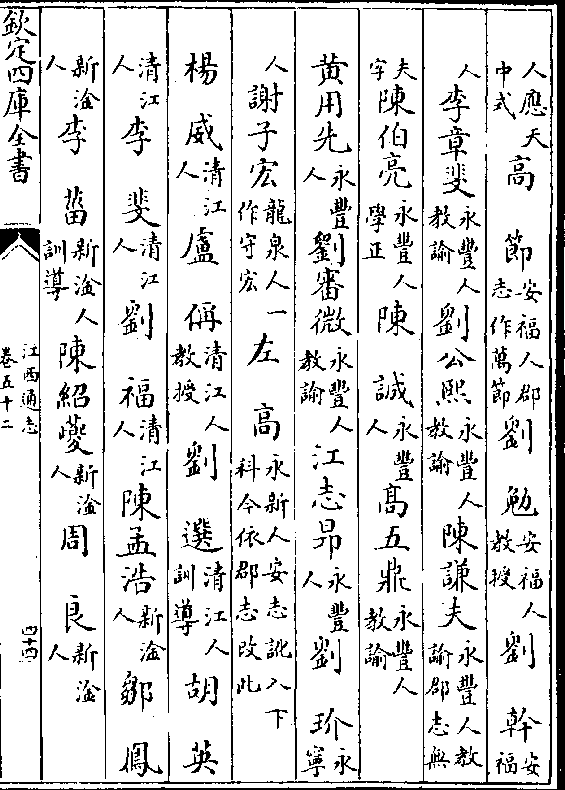 人應天中式高節安福人郡志作萬節劉勉安福人教授劉幹安福
人李章斐永豐人教諭劉公熙永豐人教諭陳謙夫永豐人教諭郡志無
夫字陳伯亮永豐人學正陳誠永豐人高五鼎永豐人教諭
黄用先永豐人劉審微永豐人教諭江志昴永豐人劉玠永寧
人謝子宏龍泉人一作守宏左高永新人安志訛入下科今依郡志改此
楊威清江人盧偁清江人教授劉選清江人訓導胡英
清江人李斐清江人劉福清江人陳孟浩新淦人鄒鳳
新淦人李菑新淦人訓導陳紹夔新淦人周良新淦人
欽定四庫全書
江西通志
卷五十二
四十四